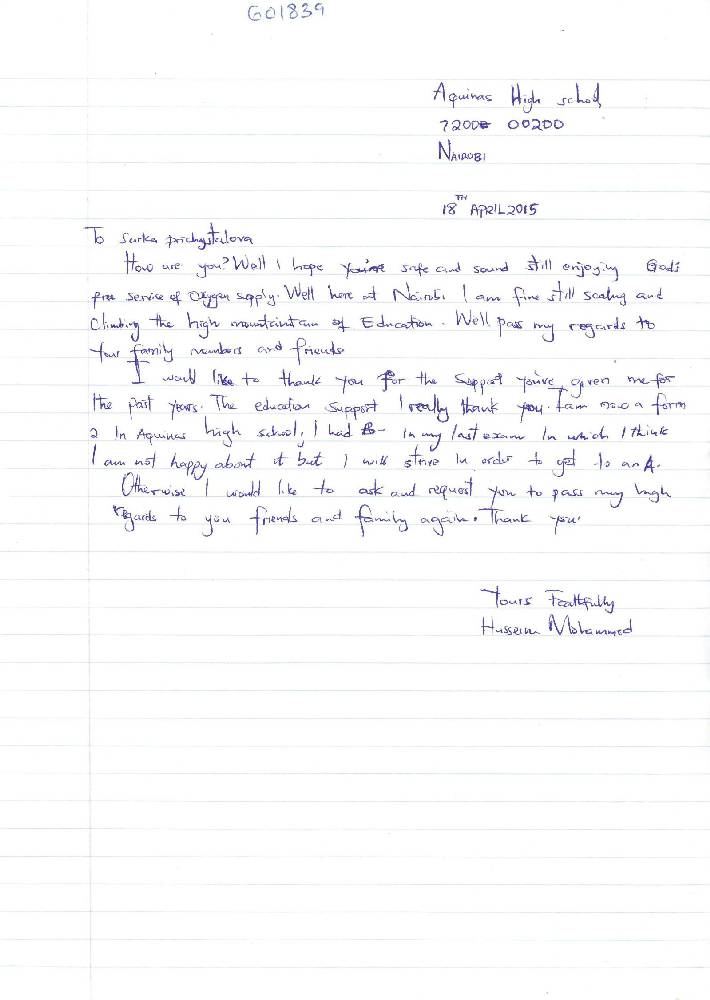 G01839
Aquinas High school,
7200 00200
NAIROBI
18TH APRIL 2015
To Sarka prichystalova
How are you? Well I hope you're safe and sound still enjoying God's
free service of Oxygen supply. Well here at Nairobi I am fine still scaling and
Climbing the high mountaintain of Education. Well pass my regards to
Your family members and friends
I would like to thank you for the support you've given me for
the past years. The education support I really thank you. I am now a form
2 In Aquinas high school, I had B- in my last exam In which I think
I am not happy about it but I will strive In order to get to an A.
Otherwise I would like to ask and request you to pass my high
regards to you friends and family again. Thank you.
Yours Faithfully
Hussein Mohammed